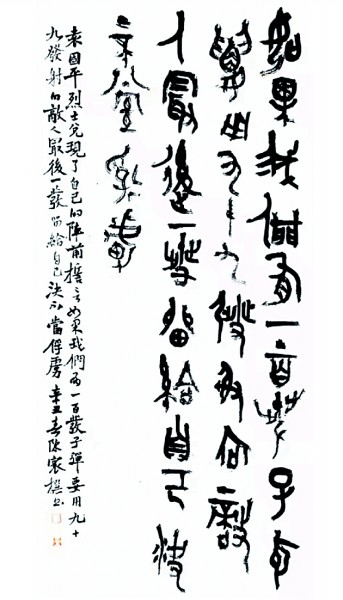 如果我們有一百發子彈
要用九十九發射向敵
人最後一發留給自己決
不當俘虜
袁國平烈士兌現了自己的陣前誓言如果我們有一百發子彈要用九十
九發射向敵人最後一發留給自己決不當俘虜 辛丑春陳家撰書